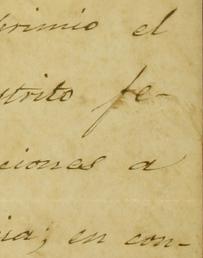 primio el
strito fe-
ciones a
cia; en con-